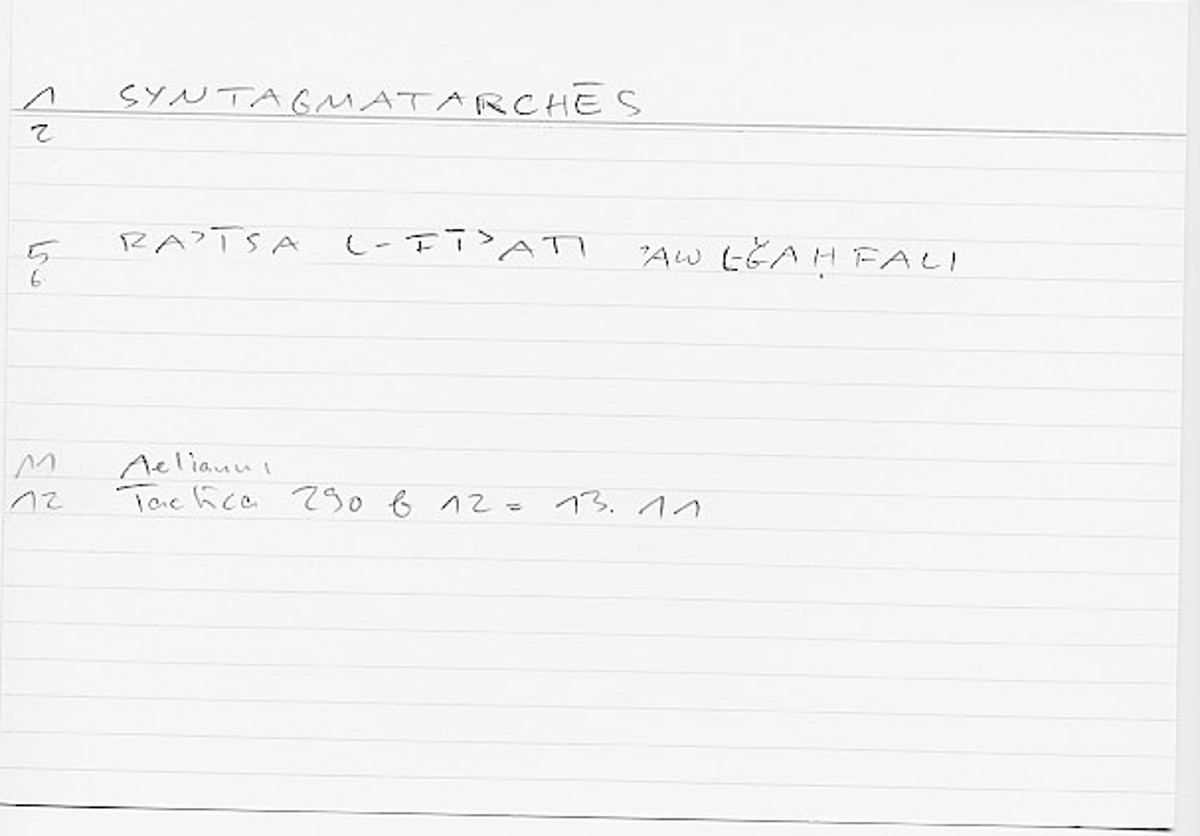 1 SYNTAGMATARCHĒS
2
5 RAʾĪSA L-FĪʾATI ʾAW L-ǦAḤFALI
6
11 Aeliani
12 Tactica 290 b 12 = 13.11